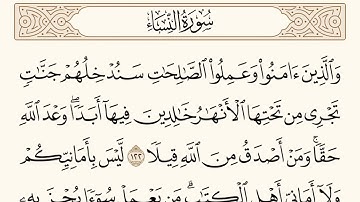 سُورَةُ النِّسَاءِ
وَالَّذِينَ ءَامَنُوا۟ وَعَمِلُوا۟ الصَّٰلِحَٰتِ سَنُدْخِلُهُمْ جَنَّٰتٍ
تَجْرِى مِن تَحْتِهَا الْأَنْهَٰرُ خَٰلِدِينَ فِيهَآ أَبَدًا ۖ وَعْدَ اللَّهِ
حَقًّا ۚ وَمَنْ أَصْدَقُ مِنَ اللَّهِ قِيلًا ١٢٢ لَّيْسَ بِأَمَانِيِّكُمْ
وَلَآ أَمَانِىِّ أَهْلِ الْكِتَٰبِ ۗ مَن يَعْمَلْ سُوٓءًا يُجْزَ بِهِۦ